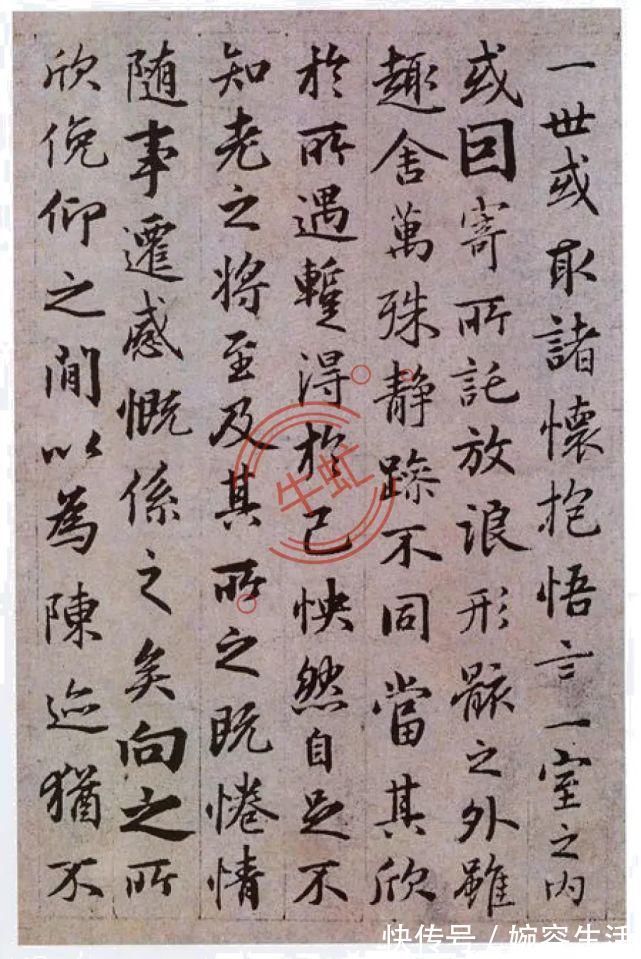 一世或取諸懷抱悟言一室之内
或因寄所託放浪形骸之外雖
趣舍萬殊静躁不同當其欣
於所遇蹔得於己怏然自足不
知老之将至及其所之既惓情
随事遷感慨係之矣向之所
欣俛仰之閒以為陳迹猶不
牛虹
快传号／婉容生活